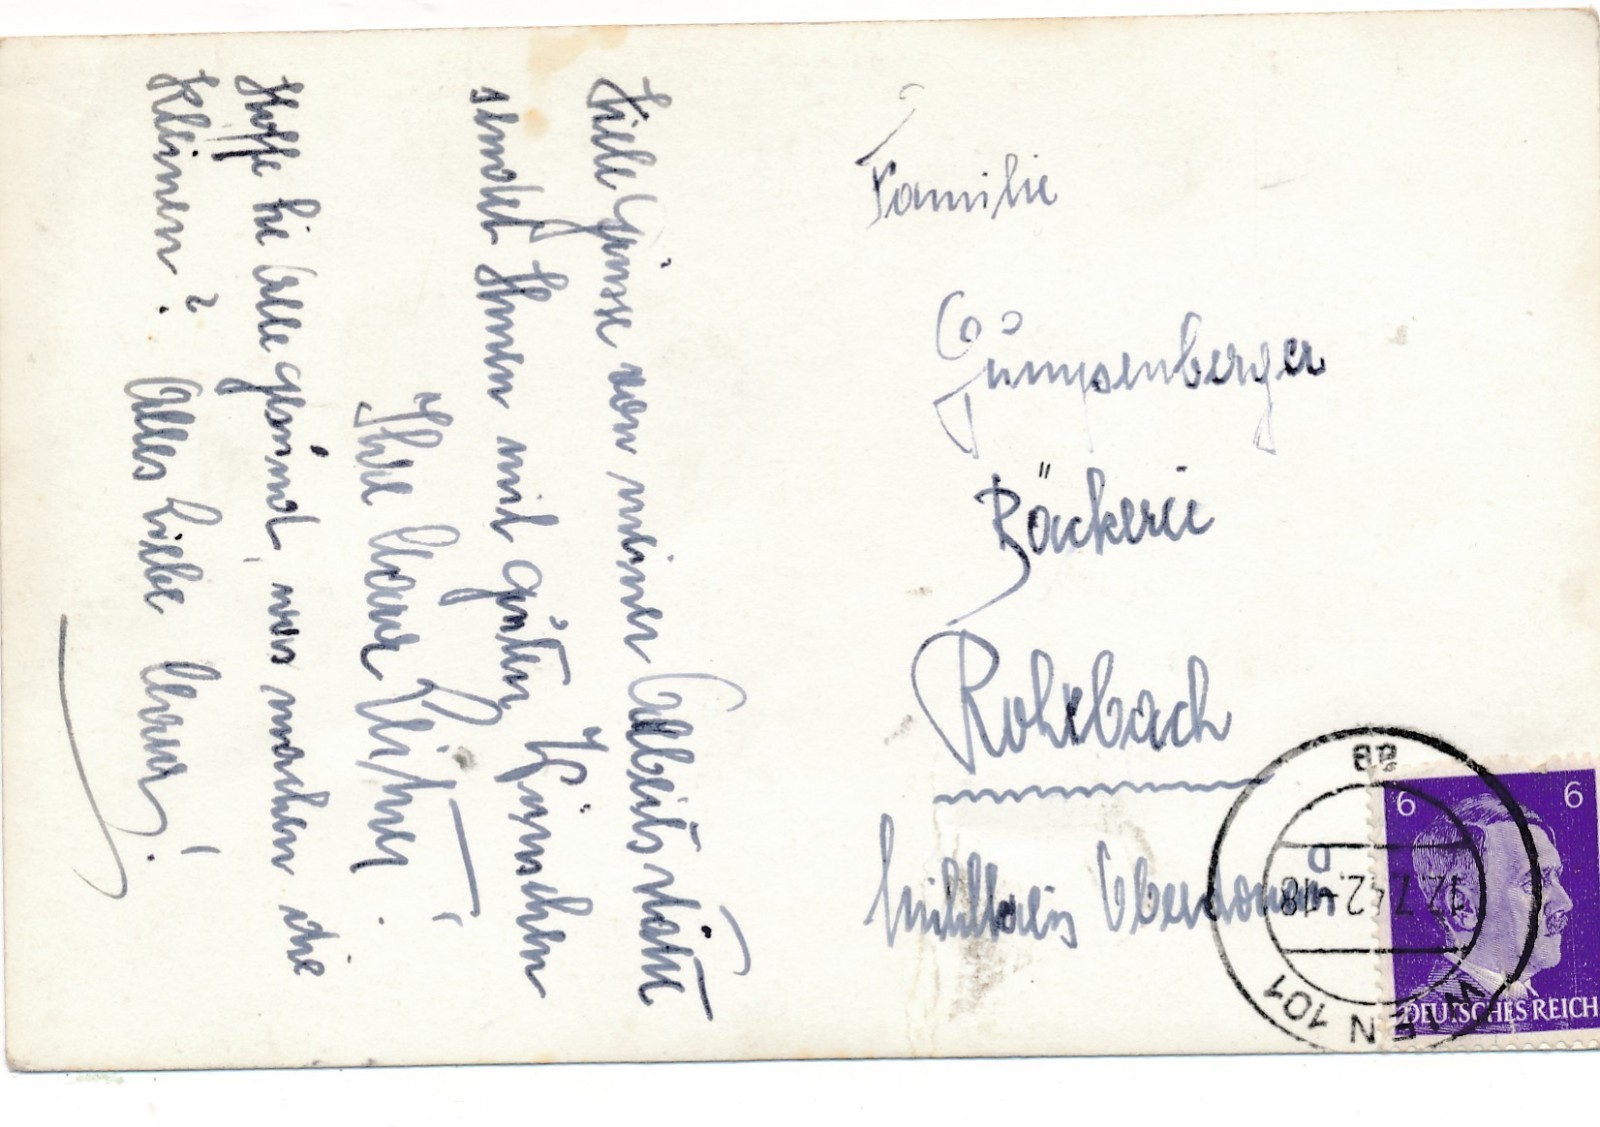 Viele Grüsse von meiner Arbeitsstätte
sendet Ihnen mit guten Wünschen
Ihre
Hoffe Sie Alle gesund, was machen die
Kleinen? Alles Liebe
Familie
Bäckerei
Rohrbach
Mühlkreis Oberdonau
6 6
DEUTSCHES REICH
WIEN 101
12.7.42.-18